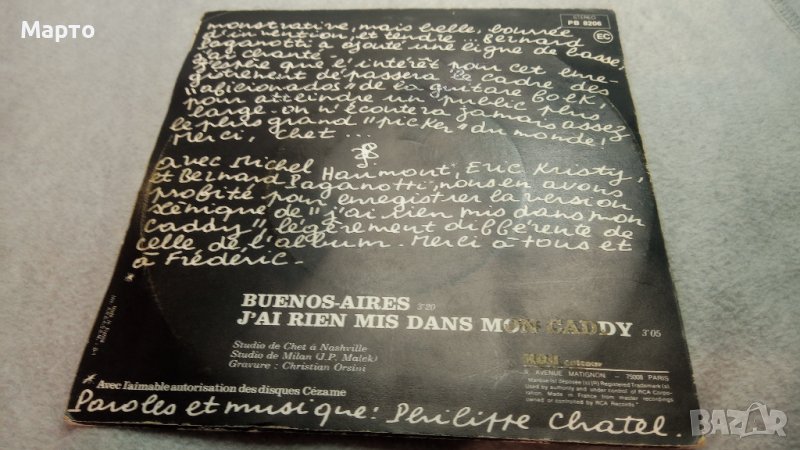 Марто
STEREO
PB 8206
EC
monstrative, mais belle, bourrée
d'invention, et tendre ... Bernard
Paganotti a ajouté une ligne de basse,
J'espère que l'intérêt pour cet enre-
gistrement dépassera le cadre des
"aficionados" de la guitare folk,
pour atteindre un public plus
large. on n'écoutera jamais assez
le plus grand "picker" du monde!
Merci, Chet ...
avec Michel Haumont, Eric Kristy,
et Bernard Paganotti, nous en avons
profité pour enregistrer la version
scénique de "j'ai rien mis dans mon
caddy", légèrement différente de
celle de l'album. Merci à tous et
à Frédéric.
BUENOS-AIRES 3'20
J'AI RIEN MIS DANS MON CADDY 3'05
Studio de Chet à Nashville
Studio de Milan (J.P. Malek)
Gravure : Christian Orsini
AVENUE MATIGNON - 75008 PARIS
Marque (s) déposée (s) (R) Registered Trademark (s)
Used by authority and under control of RCA Corpo-
ration. Made in France from master recordings
owned or controlled by RCA Records.
Avec l'aimable autorisation des disques Cézame
Paroles et musique: Philippe Chatel.
BAZAR